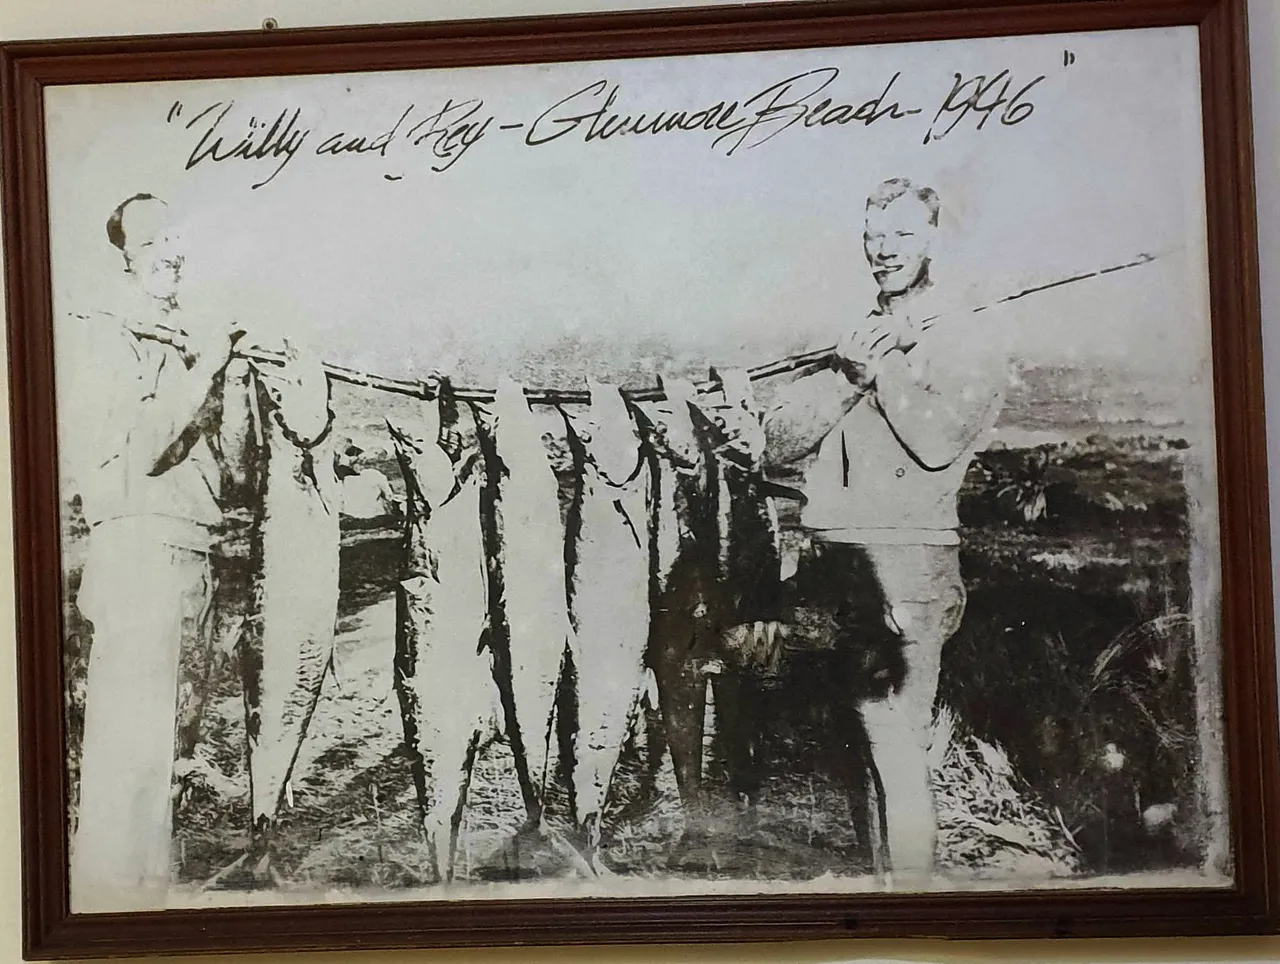 "Willy and Rey - Glenmore Beach - 1946"